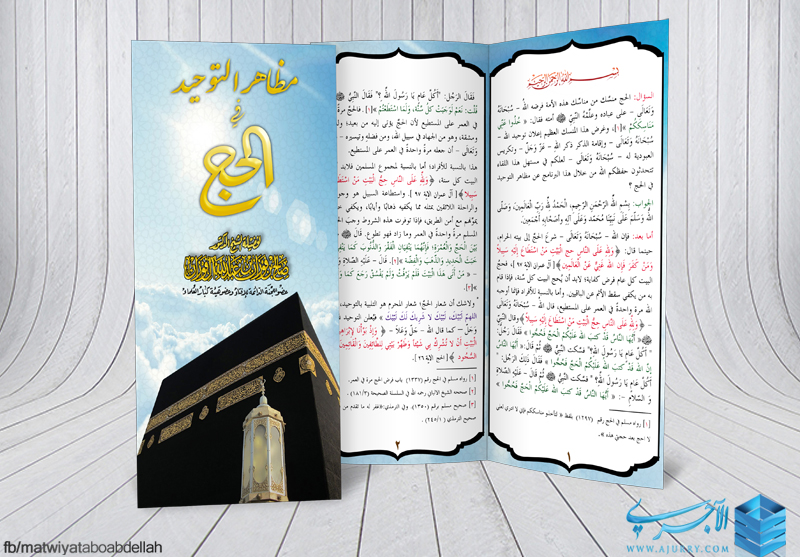 مظاهر التوحيد
في
الحج
لفضيلة الشيخ الدكتور
صالح بن فوزان بن عبدالله الفوزان
عضو اللجنة الدائمة للإفتاء وعضو هيئة كبار العلماء
بسم الله الرحمن الرحيم
السؤال: الحج منسك من مناسك هذه الأمة فرضه الله - سُبْحَانَهُ
وَتَعَالَى - على عباده وعلَّمه النبي ﷺ أمته فقال: « خُذُوا عَنِّي
مَنَاسِكَكُمْ »[١]، وغرض هذا المنسك العظيم إعلان توحيد الله -
سُبْحَانَهُ وَتَعَالَى - وإقامة الذكر ذكر الله - عَزَّ وَجَلَّ - وتكريس
العبودية له - سُبْحَانَهُ وَتَعَالَى - لعلكم في مستهل هذا اللقاء
تتحدثون حفظكم الله من خلال هذا البرنامج عن مظاهر التوحيد
في الحج ؟
الجواب: بِسْمِ اللَّهِ الرَّحْمَنِ الرَّحِيمِ، الْحَمْدُ لِلَّهِ رَبِّ الْعَالَمِينَ، وَصَلَّى
اللهُ وَسَلَّمَ عَلَى نَبِيِّنَا مُحَمَّدٍ وَعَلَى آلِهِ وَأَصْحَابِهِ أَجْمَعِينَ.
أما بعد: فإن الله - سُبْحَانَهُ وَتَعَالَى - شرع الحج إلى بيته الحرام،
حينما قال: ﴿ وَلِلَّهِ عَلَى النَّاسِ حِجُّ الْبَيْتِ مَنِ اسْتَطَاعَ إِلَيْهِ سَبِيلًا
وَمَنْ كَفَرَ فَإِنَّ اللَّهَ غَنِيٌّ عَنِ الْعَالَمِينَ ﴾[آل عمران الآية ٩٧]، فحج
البيت كل عام فرض كفاية؛ لابد أن يُحج البيت كل سنة، فإذا قام
به من يكفي سقط الإثم عن الباقين. وأما بالنسبة للأفراد فإنما أوجبه
الله مرةً واحدةً في العمر على المستطيع، قال الله - سُبْحَانَهُ وَتَعَالَى
- ﴿ وَلِلَّهِ عَلَى النَّاسِ حِجُّ الْبَيْتِ مَنِ اسْتَطَاعَ إِلَيْهِ سَبِيلًا ﴾ وقال النبي
ﷺ « أَيُّهَا النَّاسُ قَدْ كَتَبَ اللهُ عَلَيْكُمُ الْحَجَّ فَحُجُّوا » فَقَالَ رَجُلٌ:
"أَكُلَّ عَامٍ يَا رَسُولَ اللهِ؟" فسكت النبي ﷺ ثُمَّ قَالَ: «
إِنَّ اللهَ قَدْ كَتَبَ اللهُ عَلَيْكُمُ الْحَجَّ فَحُجُّوا » فَقَالَ ذلك الرَّجُلُ: "
أَكُلَّ عَامٍ يَا رَسُولَ اللهِ؟" فسكت النبي ﷺ ثُمَّ قال عَلَيْهِ الصَّلَاةُ
وَالسَّلَام -: « أَيُّهَا النَّاسُ قَدْ كَتَبَ اللهُ عَلَيْكُمُ الْحَجَّ فَحُجُّوا »
[١] رواه مسلم في الحج رقم (١٢٩٧) بلفظ «لتأخذوا مناسككم فإني لا أدري لعلي
لا أحج بعد حجتي هذه».
١
فَقَالَ الرَّجُلُ: "أَكُلَّ عَامٍ يَا رَسُولَ اللهِ ؟" فَقَالَ النَّبِيُّ ﷺ
قُلْتُ: نَعَمْ لَوَجَبَتْ كُلَّ سَنَةٍ، وَلَمَا اسْتَطَعْتُمْ »[١]. فالحج مرة
في العمر على المستطيع لأن الحج يؤتى إليه من بعيد؛ وله
ومشقة، وهو من الجهاد في سبيل الله، ومن فضله وتيسيره -
وَتَعَالَى - أن جعله مرةً واحدةً في العمر على المستطيع.
هذا بالنسبة للأفراد؛ أما بالنسبة لمجموع المسلمين فلابد
البيت كل سنة، ﴿ وَلِلَّهِ عَلَى النَّاسِ حِجُّ الْبَيْتِ مَنِ اسْتَطَاعَ
سَبِيلًا ﴾[آل عمران الآية ٩٧]. واستطاعة السبيل هو وجود
والراحلة اللائقين بمثله مما يكفيه ذهابًا وإيابًا، ويكفي
يمونهم مع أمن الطريق، فإذا توفرت هذه الشروط وجب
المسلم مرةً واحدةً في العمر وما زاد فهو تطوع. قال ﷺ
بَيْنَ الْحَجِّ وَالْعُمْرَةِ؛ فَإِنَّهُمَا يَنْفِيَانِ الْفَقْرَ وَالذُّنُوبَ كَمَا يَنْفِي
خَبَثَ الْحَدِيدِ وَالذَّهَبِ وَالْفِضَّةِ »[٢]. قال - عَلَيْهِ الصَّلَاةُ
- « مَنْ أَتَى هَذَا الْبَيْتَ فَلَمْ يَرْفُثْ وَلَمْ يَفْسُقْ رَجَعَ كَمَا
»[٣].
ولاشك أن شعار الحج؛ شعار المحرم هو التلبية بالتوحيد،
اللهم لبيك، لَبَّيْكَ لَا شَرِيكَ لَكَ لَبَّيْكَ » فيُعلن التوحيد
وَجَلَّ – كما قال الله - جَلَّ وَعَلَا - ﴿ وَإِذْ بَوَّأْنَا لِإِبْرَاهِيمَ
الْبَيْتِ أَنْ لَا تُشْرِكْ بِي شَيْئًا وَطَهِّرْ بَيْتِيَ لِلطَّائِفِينَ وَالْقَائِمِينَ
السُّجُودِ ﴾[الحج الآية ٢٦].
[١] رواه مسلم في الحج رقم (١٣٣٧) باب فرض الحج مرة في العمر.
[٢] صححه الشيخ الألباني رحمه الله في السلسلة الصحيحة
[٣] صحيح مسلم رقم (١٣٥٠) وفي الترمذي: «غفر له ما تقدم من
صحيح الترمذي (٢٤٥/١).
٢
الآجري
WWW.AJURRY.COM
fb/matwiyataboabdellah